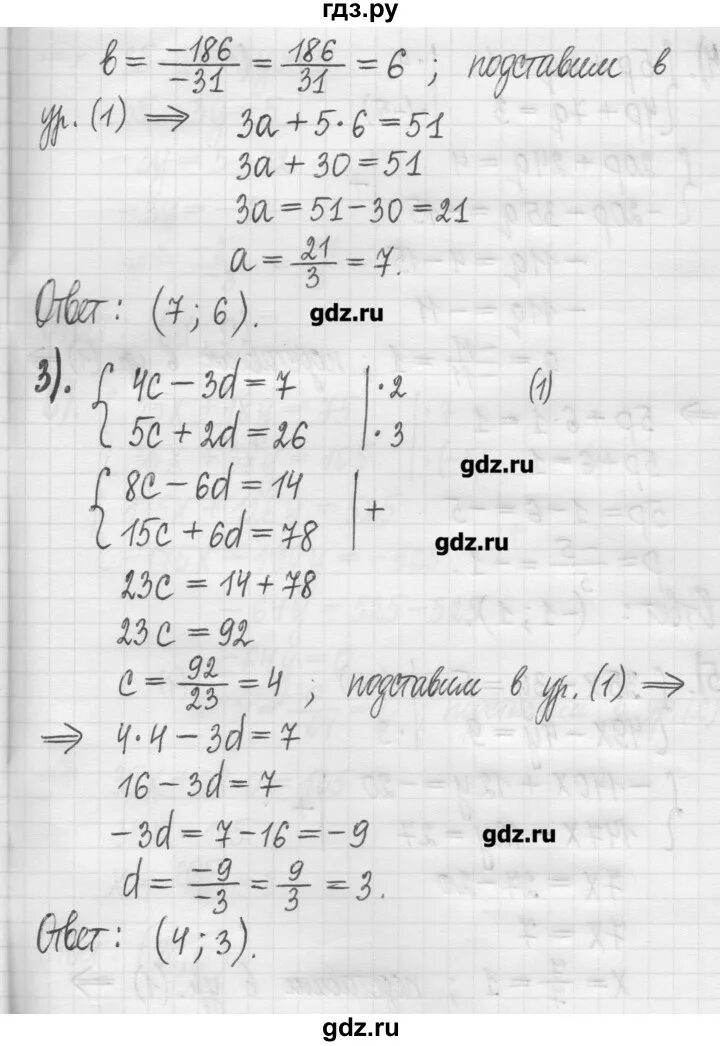 гдз.ру
в = -186/-31 = 186/31 = 6 ; подставим в
ур. (1) ⟹ 3a + 5·6 = 51
3a + 30 = 51
3a = 51 − 30 = 21
a = 21/3 = 7.
Ответ: (7; 6).
gdz.ru
3). { 4c − 3d = 7 | ·2 (1)
5c + 2d = 26 | ·3
gdz.ru
{ 8c − 6d = 14 | +
15c + 6d = 78
gdz.ru
23c = 14 + 78
23c = 92
c = 92/23 = 4 ; подставим в ур. (1) ⟹
⟹ 4·4 − 3d = 7
16 − 3d = 7
−3d = 7 − 16 = −9
gdz.ru
d = -9/-3 = 9/3 = 3.
Ответ: (4; 3).
gdz.ru